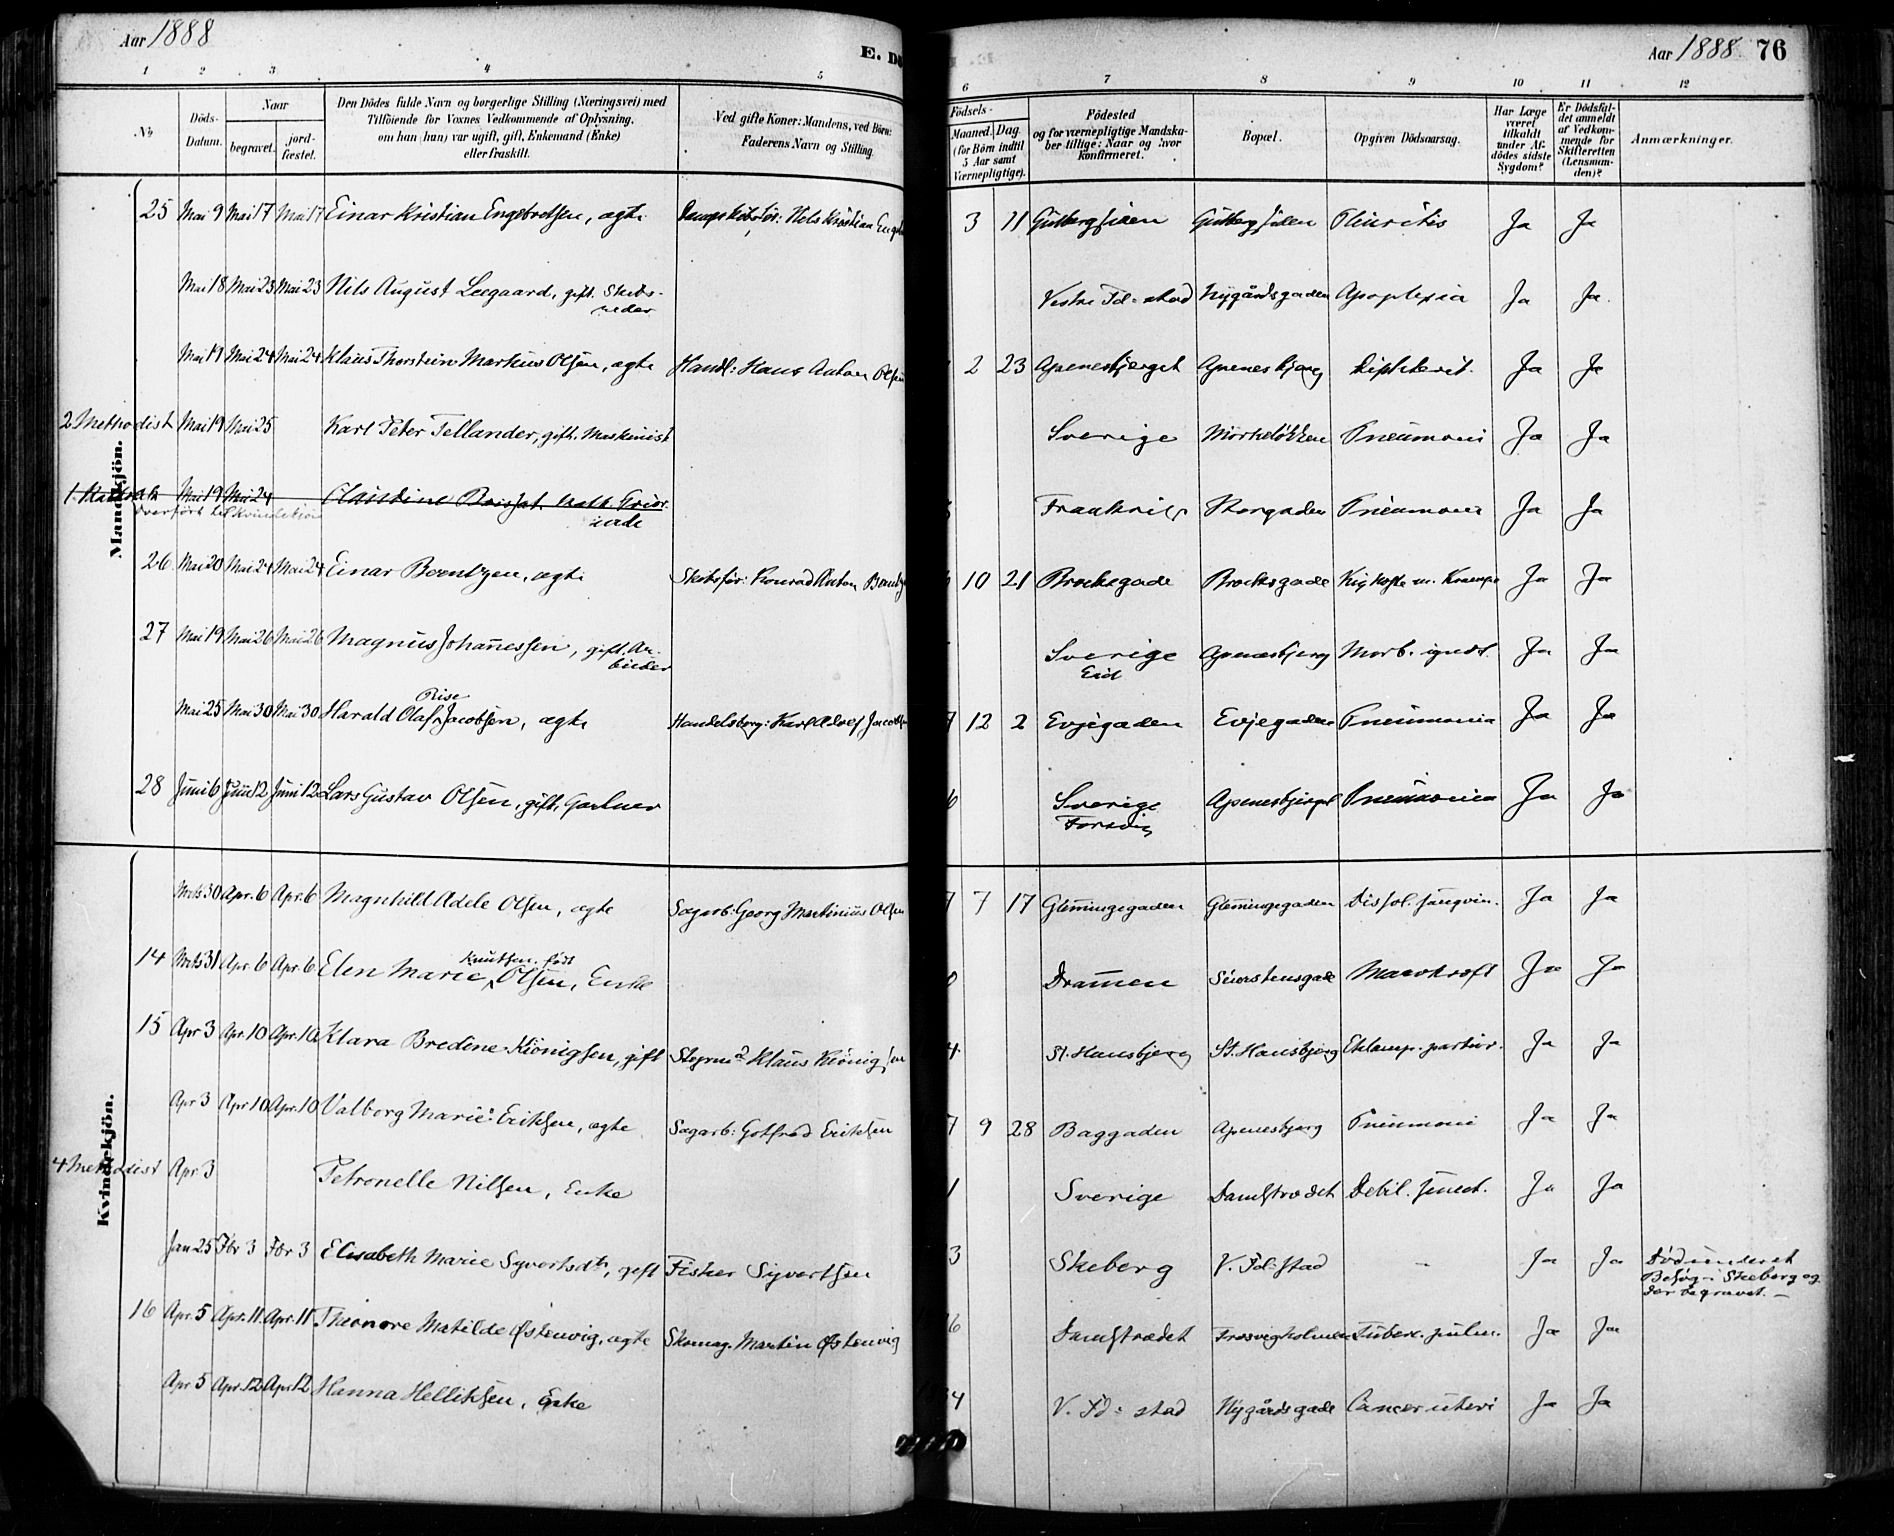 Aar 1888
E. DÖ
Aar 1888 76
1 2 3 4 5 6 7 8 9 10 11 12
No
Döds-Datum.
Naar
begravet. jord-fæstet.
Den Dödes fulde Navn og borgerlige Stilling (Næringsvei) med
Tilföiende for Voxnes Vedkommende af Oplysning,
om han (hun) var ugift, gift, Enkemand (Enke)
eller fraskilt.
Ved gifte Koner: Mandens, ved Börn:
Faderens Navn og Stilling.
Födsels-
Maaned. Dag
(for Börn indtil
5 Aar samt
Værnepligtige).
Födested
og for værnepligtige Mandska-
ber tillige: Naar og hvor
konfirmeret.
Bopæl.
Opgiven Dödsaarsag.
Har Læge
været
tilkaldt
under Af-
dödes sidste
Sygdom?
Er Dödsfal-
det anmeldt
af Vedkom-
mende for
Skifteretten
(Lensman-
den)?
Anmærkninger.
Mandkjön.
25 Mai 9 Mai 17 Mai 17 Einar Kristian Engebretsen, ægte Nels Kristian 3 11 Gutbergsiden Gutbergsiden Pleuritis Ja Ja
Mai 18 Mai 23 Mai 23 Nils August Leegaard, gift. Skibs-
reder Vestre Fd=stad Nygårdsgaden Apoplexia Ja Ja
Mai 19 Mai 24 Mai 24 Klaus Thorstein Markus Olsen, ægte Handl: Hans Anton Olsen 2 23 Apenesbjerget Apenesbjerg Difhterit. Ja Ja
2 Methodist Mai 19 Mai 25 Karl Peter Tellander, gift. Maskinist Sverige Mörkeløkken Pneumoni Ja Ja
1. Mai 19 Mai 24 Claudine
inde Frankrig Storgaden Pneumoni Ja Ja
overført til Kvindekjøn
26 Mai 20 Mai 24 Mai 24 Einar Berntzen, ægte Skibsför: Konrad Anton 10 21 Brochsgade Brochsgade Kighoste m. Krampe Ja Ja
27 Mai 19 Mai 26 Mai 26 Magnus Johannessen, gift. Ar-
beider Sverige
Eid Apenesbjerg Morb. Ja Ja
Mai 25 Mai 30 Mai 30 Harald Olaf Rise Jacobsen, ægte Handelsborg: Karl Adolf 12 2 Evjegaden Evjegaden Pneumonia Ja Ja
28 Juni 6 Juni 12 Juni 12 Lars Gustav Olsen, gift, Gartner 6 Sverige
Apenesbjerget Pneumonia Ja Ja
Kvindekjön.
Mrts 30 Apr. 6 Apr. 6 Magnhild Adele Olsen, ægte Sagarb: Georg Martinius Olsen 7 7 17 Glemmingegaden Glemmingegaden Dissol. sangvin. Ja Ja
14 Mrts 31 Apr. 6 Apr. 6 Elen Marie Knutsen født Olsen, Enke Drammen Maarkroft Ja Ja
15 Apr 3 Apr. 10 Apr. 10 Klara Bredine Kiönigsen, gift Styrmd Klaus Kiönigsen 4 St. Hansbjerg St. Hansbjerg Eklamp. partur. Ja Ja
Apr 3 Apr 10 Apr. 10 Valborg Marie Eriksen, ægte Sagarb: Gotfred Eriksen 7 9 28 Baggaden Apenesbjerg Pneumoni Ja Ja
4 Methodist Apr 3 Petronelle Nilsen, Enke 1 Sverige Damstrædet Debil. senect. Ja Ja
Jan 25 Febr 3 Febr 3 Elisabeth Marie Syvertsdtr, gift Fisker Syvertsen 3 Skeberg V. Fd=stad - Ja Ja Död under et
Besøg i Skeberg og
der begravet. -
16 Apr. 5 Apr. 11 Apr. 11 Theonore Matilde Østenvig, ægte Skomag. Martin Østenvig 6 Damstrædet Fresvigholmen Tuberc. pulm. Ja Ja
Apr 5 Apr. 12 Apr 12 Hanna Helliksen, Enke 4 V. Fd=stad Nygårdsgade Cancer uteri Ja Ja